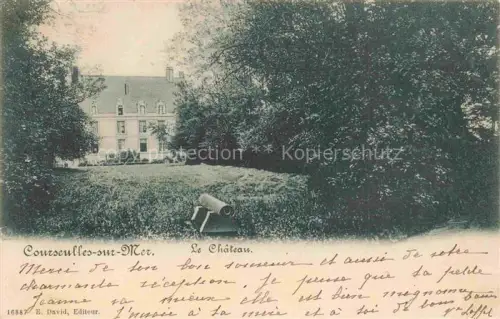 Copyright Collection @ Kopierschutz
Courseulles-sur-Mer. Le Château.
Merci de ton bon souvenir et aussi de votre
charmante réception. Je pense que ta petite
Jeanne va mieux elle est bien mignonne
16847 E. David, Editeur. à ta mère et à toi de bons